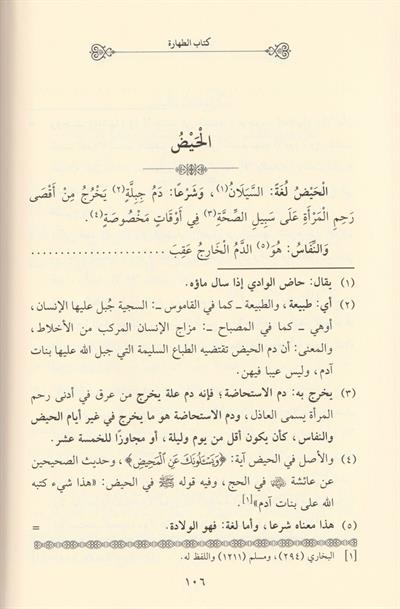 كتاب الطهارة
الْحَيْضُ
الْحَيْضُ لُغَةً: السَّيَلَانُ(١)، وَشَرْعًا: دَمُ جِبِلَّةٍ(٢) يَخْرُجُ مِنْ أَقْصَى
رَحِمِ الْمَرْأَةِ عَلَى سَبِيلِ الصِّحَّةِ(٣) فِي أَوْقَاتٍ مَخْصُوصَةٍ(٤).
وَالنِّفَاسُ: هُوَ(٥) الدَّمُ الْخَارِجُ عَقِبَ ..............................
(١) يقال: حاض الوادي إذا سال ماؤه.
(٢) أي: طبيعة، والطبيعة ـ كما في القاموس ـ: السجية جُبل عليها الإنسان،
أوهي ـ كما في المصباح ـ: مزاج الإنسان المركب من الأخلاط،
والمعنى: أن دم الحيض تقتضيه الطباع السليمة التي جبل الله عليها بنات
آدم، وليس عيبا فيهن.
(٣) يخرج به: دم الاستحاضة؛ فإنه دم علة يخرج من عرق في أدنى رحم
المرأة يسمى العاذل، ودم الاستحاضة هو ما يخرج في غير أيام الحيض
والنفاس، كأن يكون أقل من يوم وليلة، أو مجاوزًا للخمسة عشر.
(٤) والأصل في الحيض آية: ﴿وَيَسْئَلُونَكَ عَنِ الْمَحِيضِ﴾، وحديث الصحيحين
عن عائشة رضي الله عنها في الحج، وفيه قوله ﷺ في الحيض: «هذا شيء كتبه
الله على بنات آدم»[١].
(٥) هذا معناه شرعا، وأما لغة: فهو الولادة. =
[١] البخاري (٢٩٤)، ومسلم (١٢١١) واللفظ له.
١٠٦